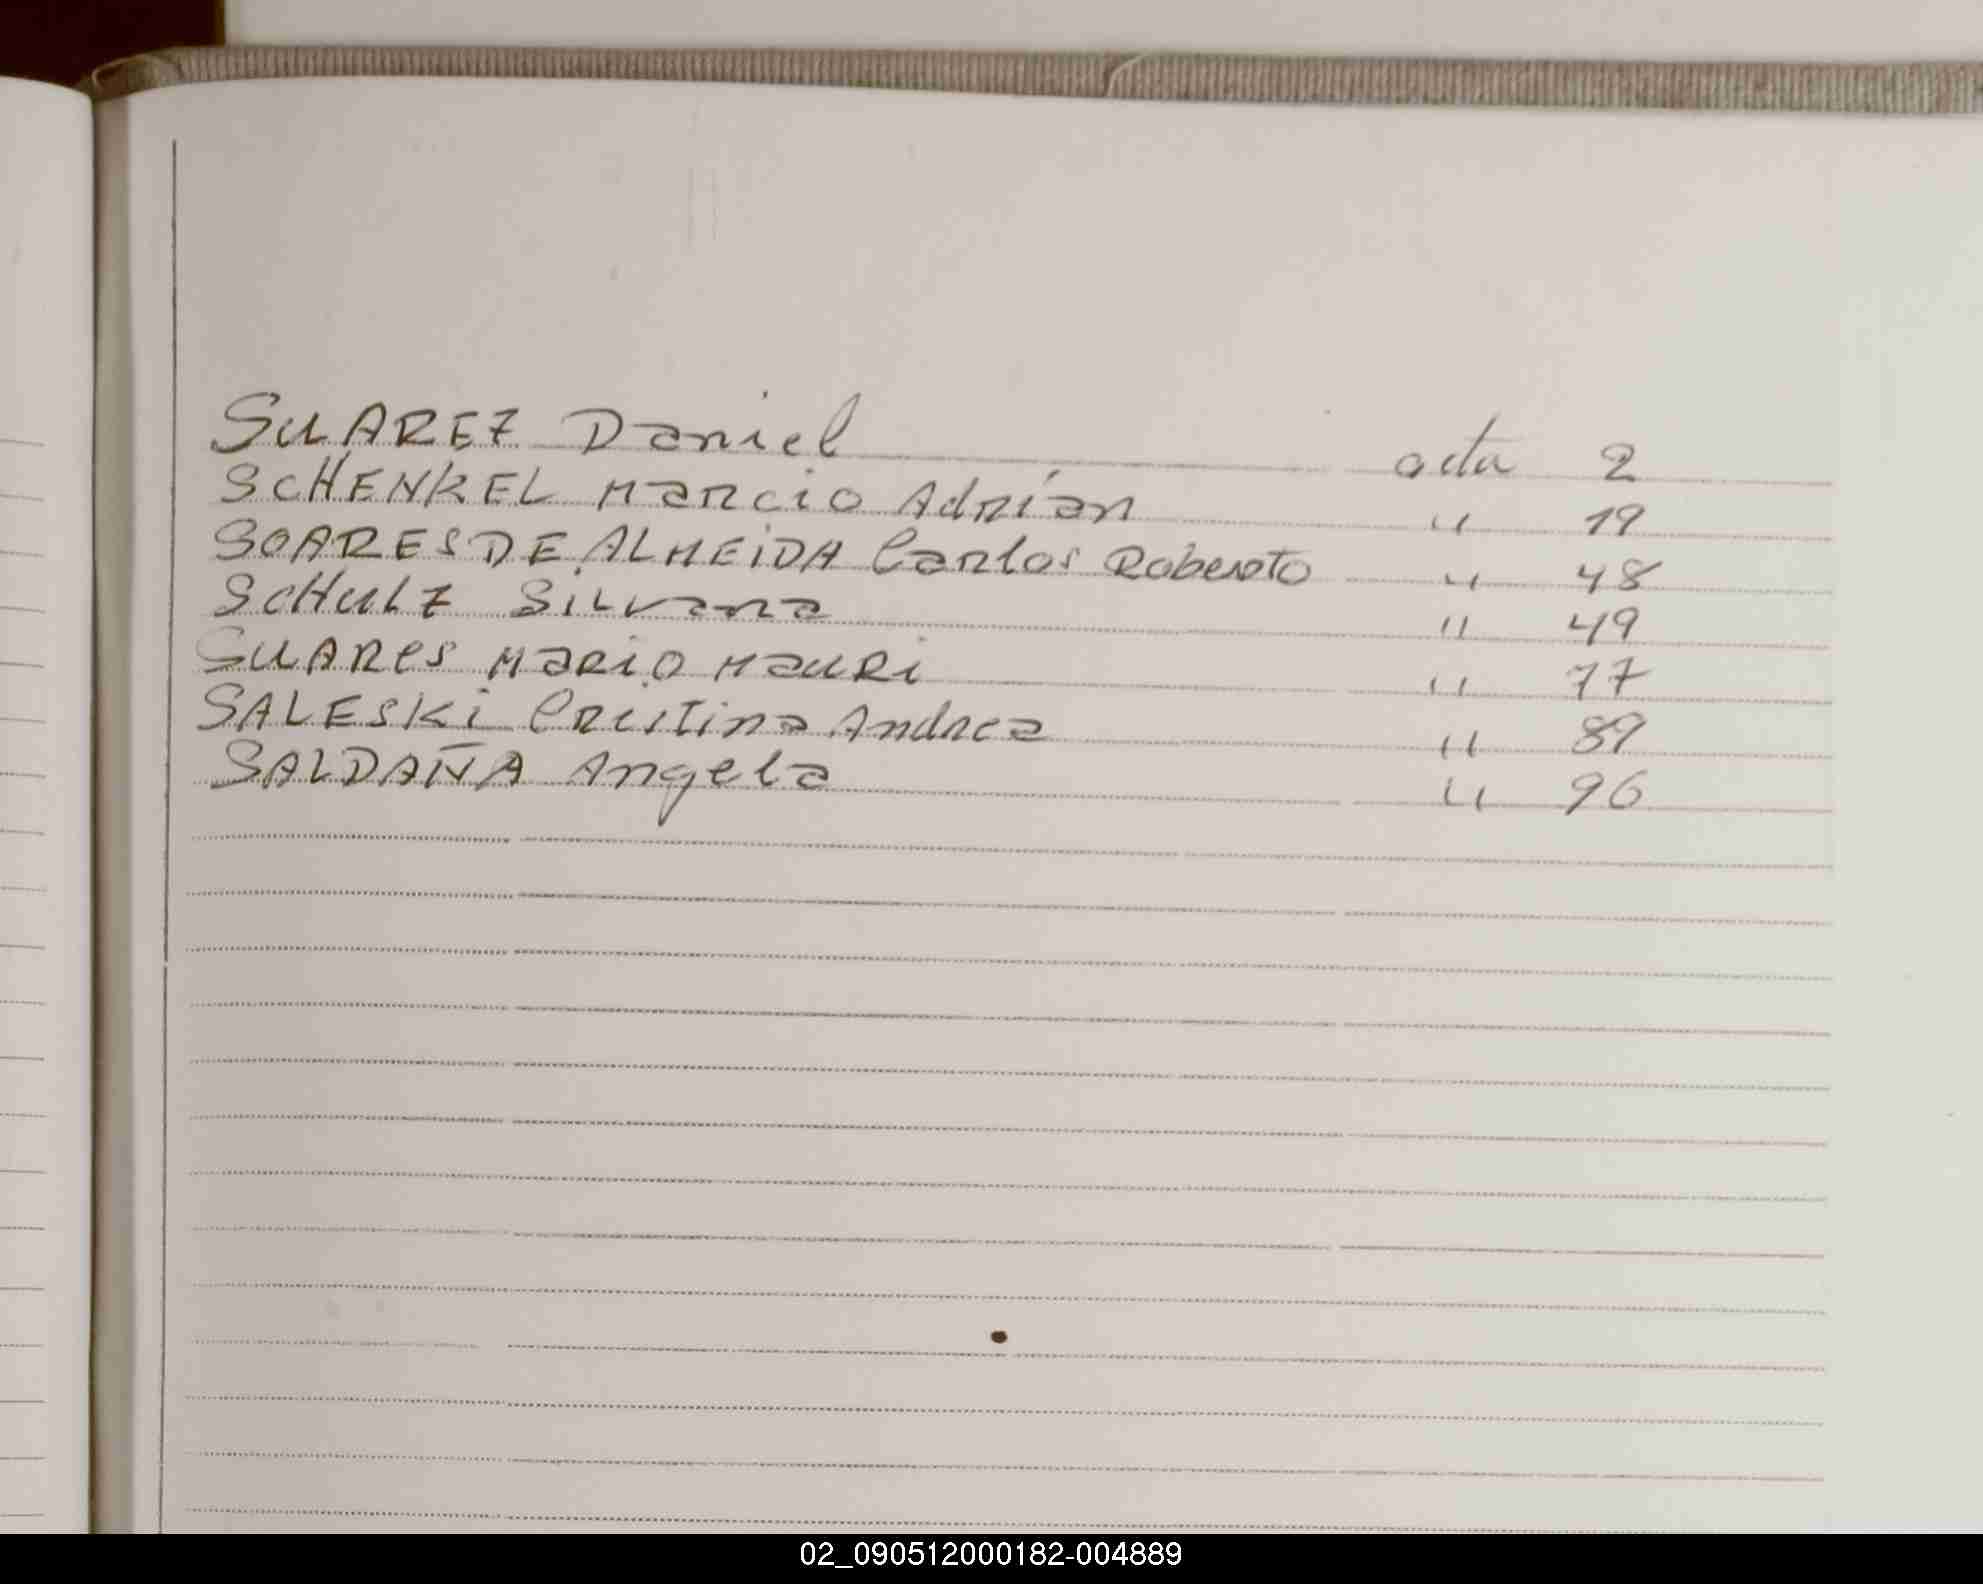 SUAREZ Daniel acta 2
SCHENKEL Marcio Adrían " 19
SOARES DE ALMEIDA Carlos Roberto " 48
SCHULZ Silvana " 49
SUARES MARIO MAURI " 77
SALESKI Cristina Andrea " 89
SALDAÑA Angela " 96
02_090512000182-004889